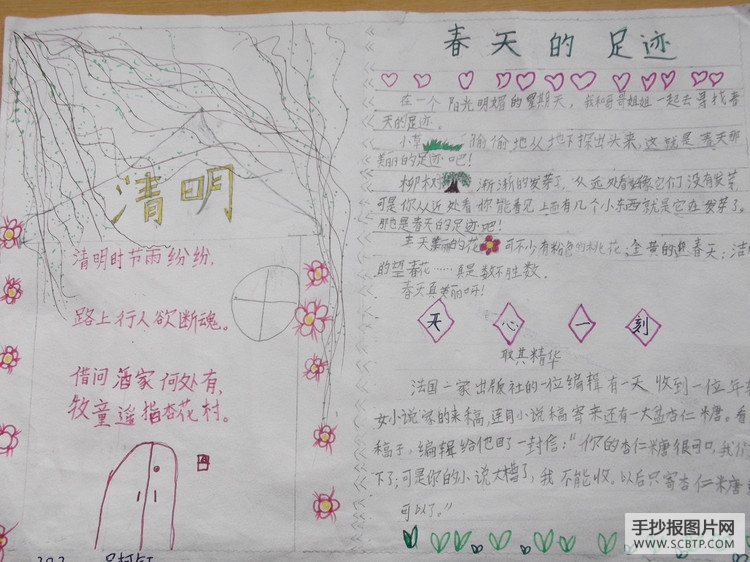 清明
清明时节雨纷纷,
路上行人欲断魂。
借问酒家何处有,
牧童遥指杏花村。
春天的足迹
在一个阳光明媚的星期天,我和哥哥姐姐一起去寻找春
天的足迹.
小草偷偷地从地下探出头来,这就是春天那
美丽的足迹吧!
柳树渐渐的发芽了,从远处看
可是你从近处看你能看见上还有几个小东西就是它在发芽了。
那也是春天的足迹吧!
春天美丽的花可不少有粉色的桃花,金黄的迎春天;洁
的望春花……真是数不胜数.
春天真美丽呀!
开心一刻
取其精华
法国一家出版社的一位编辑有一天,收到一位年
女小说家的来稿,连同小说稿寄来还有一大盒杏仁糖。看
稿子,编辑给他回了一封信:“你的杏仁糖很可口,我们
下了;可是你的小说太糟了,我不能收。以后只寄杏仁糖
可以了。”
手抄报图片网
WWW.SCBTP.COM